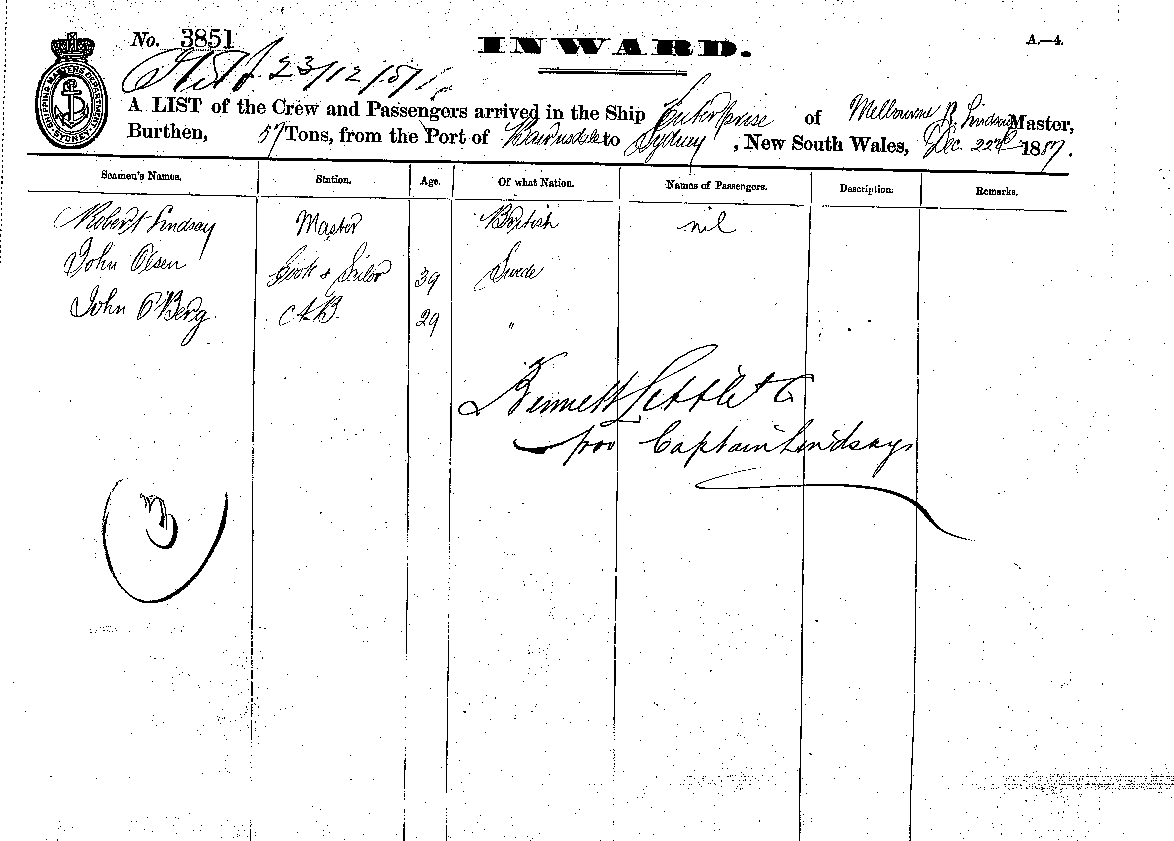 No. 3851
INWARD.
A.—4.
23/12/87
SHIPPING MASTER'S DEPARTMENT
A LIST of the Crew and Passengers arrived in the Ship Enterprise of Melbourne R. Lindsay Master,
Burthen, 57 Tons, from the Port of Bairnsdale to Sydney, New South Wales, Dec. 22nd 1887.
Seamen's Names. Station. Age. Of what Nation. Names of Passengers. Description. Remarks.
Robert Lindsay Master British nil
John Olsen Cook & Sailor 39 Swede
John O'Berg A.B. 29 "
Bennett Settle & Co
pro Captain Lindsay